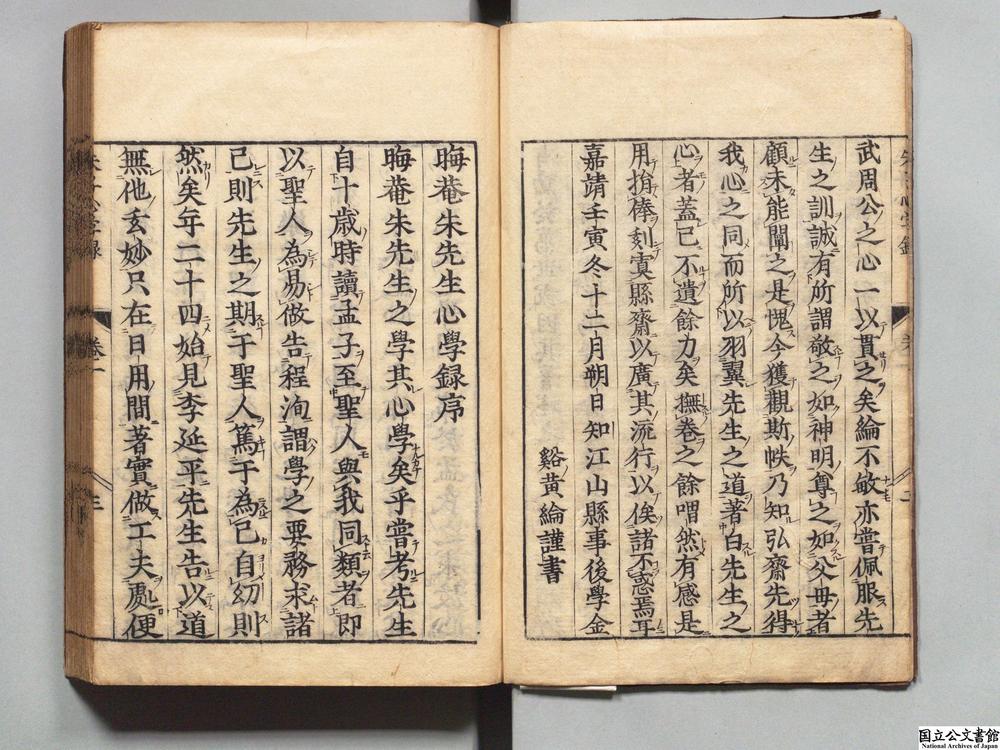 武周公之心一以貫之矣綸不敏亦嘗佩服先
生之訓誠有所謂敬之如神明尊之如父母者
顧未能闡之是愧今獲觀斯帙乃知弘齋先得
我心之同而所以羽翼先生之道著白先生之
心者蓋已不遺餘力矣撫卷之餘喟然有感是
用捐俸刻寘縣齋以廣其流行以俟諸不惑焉耳
嘉靖壬寅冬十二月朔日知江山縣事後學金
谿黃綸謹書
晦菴朱先生心學録序
晦菴朱先生之學其心學矣乎嘗考先生
自十歳時讀孟子至聖人與我同類者即
以聖人為易做告程洵謂學之要務求諸
己則先生之期于聖人篤于為己自幼則
然矣年二十四始見李延平先生告以道
無他玄妙只在日用間著實做工夫處便
卷一
三
二
国立公文書館
National Archives of Japan